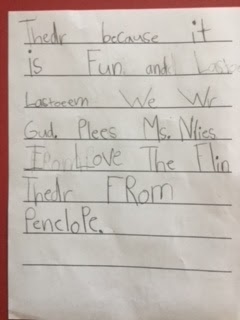 Thedr because it
is Fun. and
Lastoeem We Wr
Gud. Plees Ms. Nlies
I Love The Flin
Thedr FRom
PencloPe.